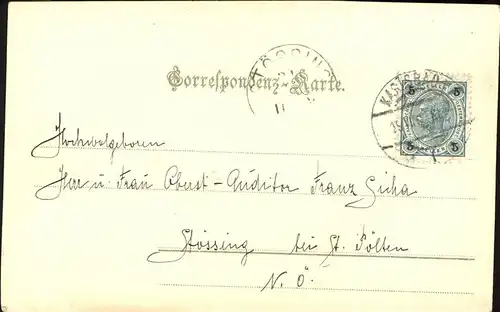 STÖSSING
Correspondenz-Karte.
KARLSBAD
5 5
5 5
Hochwolgeboren
Herr u. Frau Oberst-Auditor Franz Sicha
Stössing bei St. Pölten
N. Ö.